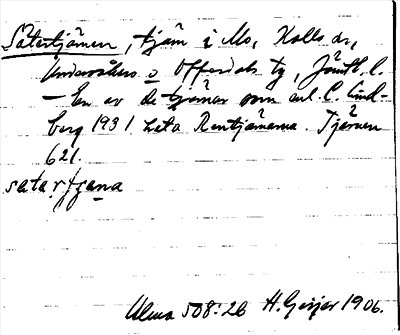 Sätertjärnen, tjärn i Mo, Kalls sn,
Undersåkers o Offerdals tg, Jämtl. l.
— En av de tjärnar som enl. C. Lind-
berg 1931 heta Rentjärnarna. Tjärnen
621.
sätartjana
Ulma 508:26 H. Geijer 1906.